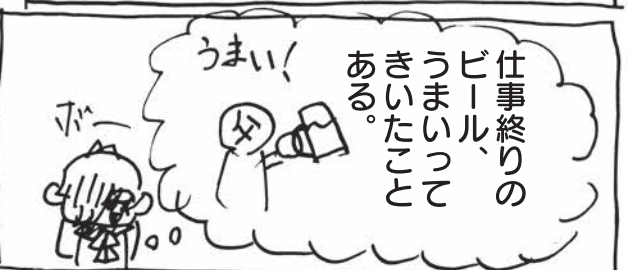 仕事終りの
ビール、
うまいって
きいたこと
ある。
うまい!
父
ボー